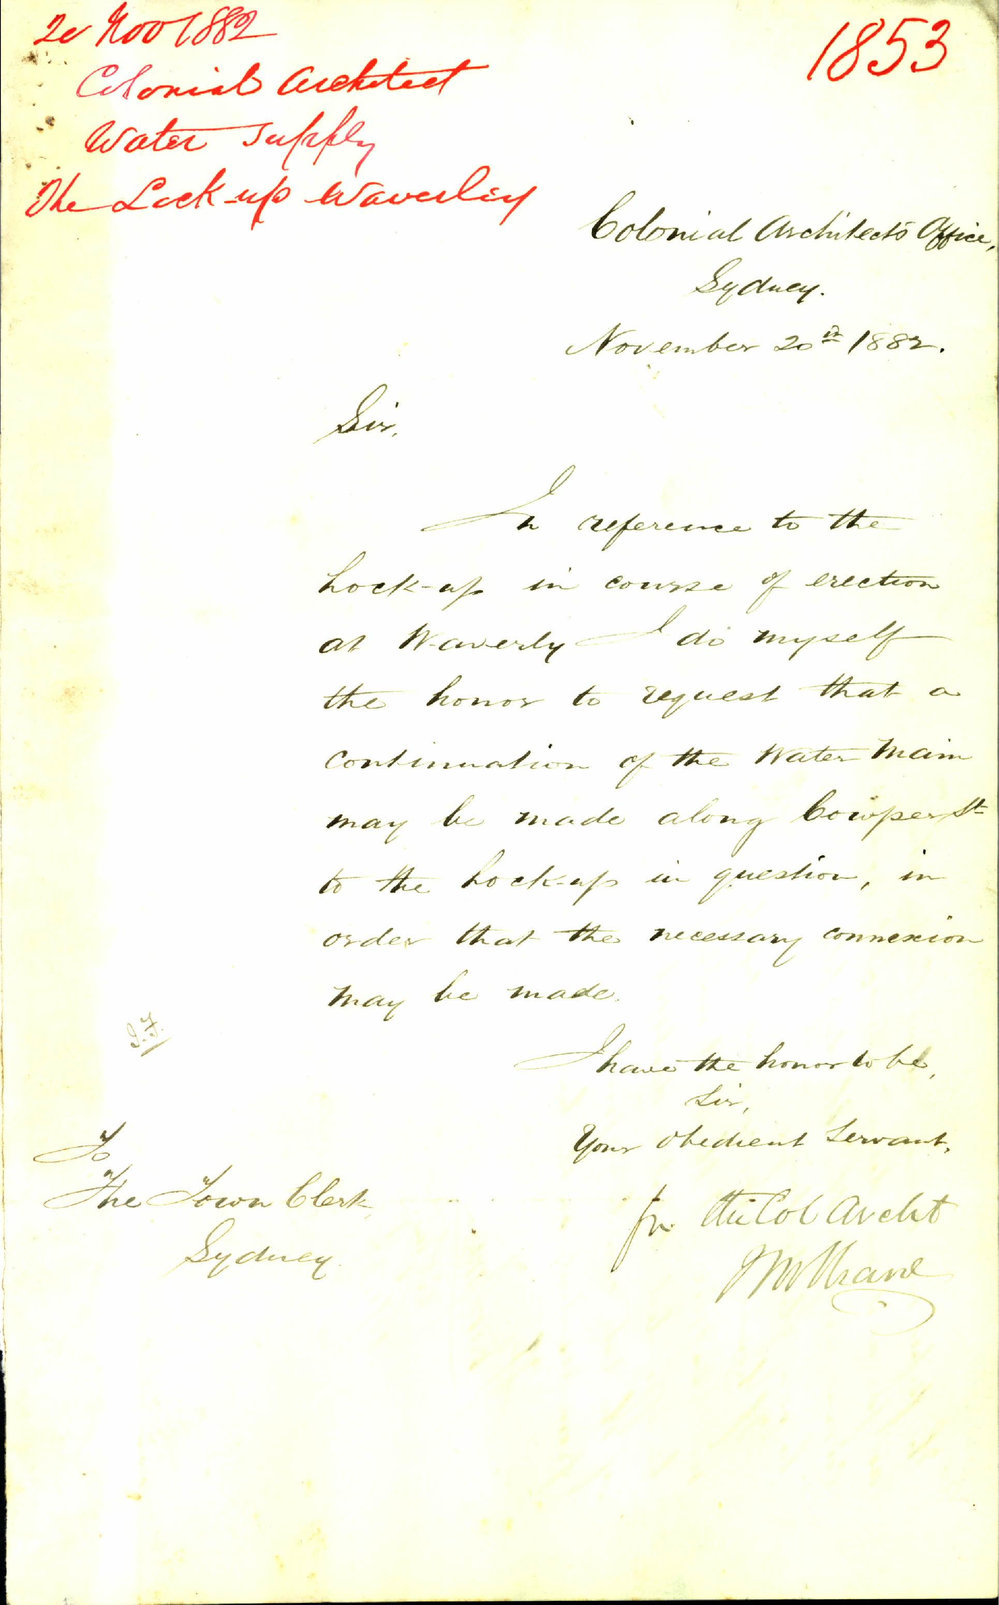 20 Nov 1882
1853
Colonial Architect
Water Supply
The Lock-up Waverley
Colonial Architect's Office,
Sydney.
November 20th 1882.
Sir,
In reference to the
Lock-up in course of erection
at Waverly I do myself
the honor to request that a
continuation of the Water Main
may be made along Cowper St
to the Lock-up in question, in
order that the necessary connexion
may be made.
I have the honor to be,
Sir,
Your Obedient Servant,
for the Col Archt
To
The Town Clerk,
Sydney